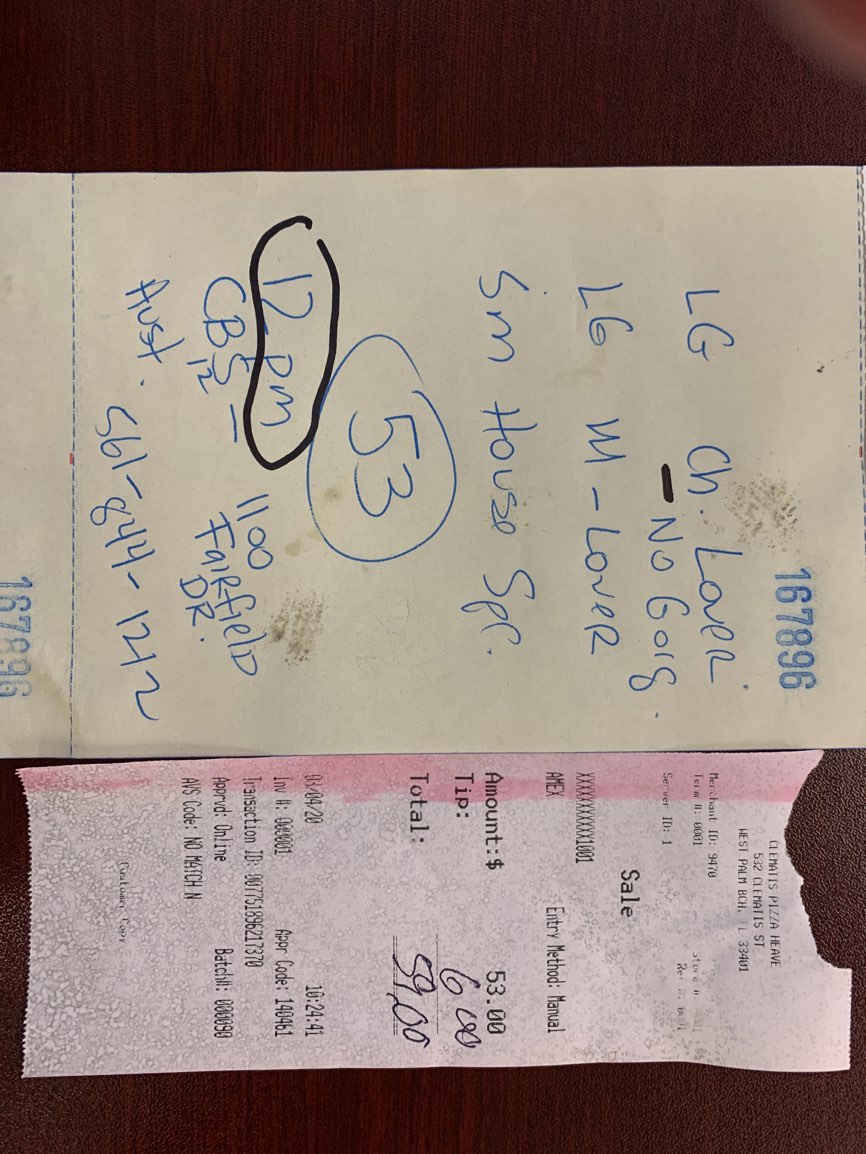 167896
LG Ch. Lover
- No Gorg.
LG M-Lover
Sm House Spc.
53
12 pm
CBS - 1100
12 Fairfield
DR.
Aust. 561-844-1212
167896
CLEMATIS PIZZA HEAVE
532 CLEMATIS ST
WEST PALM BCH, FL 33401
Merchant ID: 9470
Term #: 0001 Store #:
Server ID: 1 Ref #:
Sale
XXXXXXXXXXX1001
AMEX Entry Method: Manual
Amount:$ 53.00
Tip: 6 00
Total: 59,00
03/04/20 10:24:41
Inv #: 000001 Appr Code: 140461
Transaction ID: 007751896217370
Apprvd: Online Batch#: 000090
AVS Code: NO MATCH N
Customer Copy